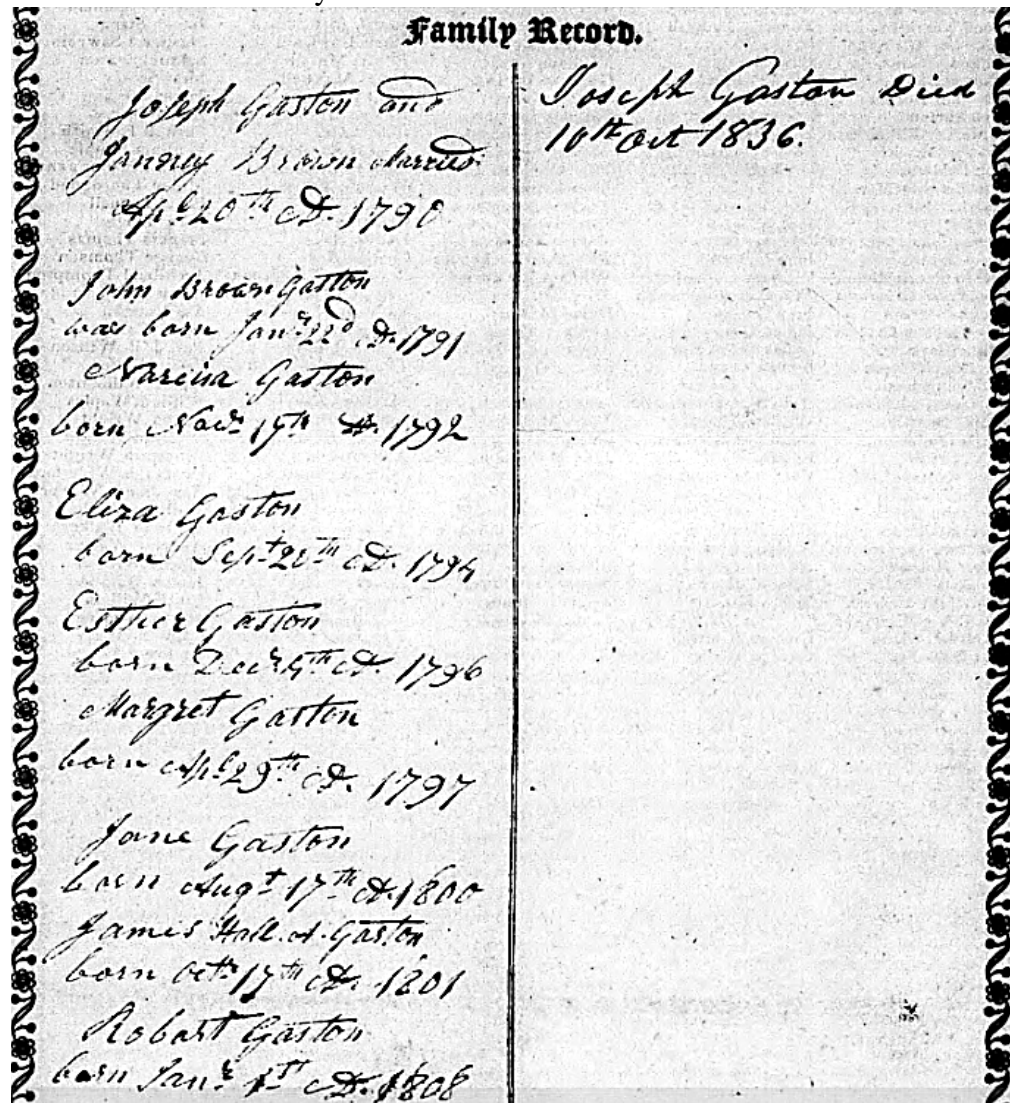 Family Record.
Joseph Gaston and
Janney Brown Married
Apl. 20th AD. 1790
John Brown Gaston
was born Jany. 22d AD. 1791
Narcisa Gaston
born Novr. 19th AD. 1792
Eliza Gaston
born Sept. 20th AD. 1794
Esther Gaston
born Decr. 9th AD. 1796
Margret Gaston
born Apl. 29th AD. 1797
Jane Gaston
born Augt. 17th AD. 1800
James Hall A. Gaston
born Octr. 17th AD. 1801
Robart Gaston
born Jany. 1st AD. 1808
Joseph Gaston Died
10th Oct 1836.